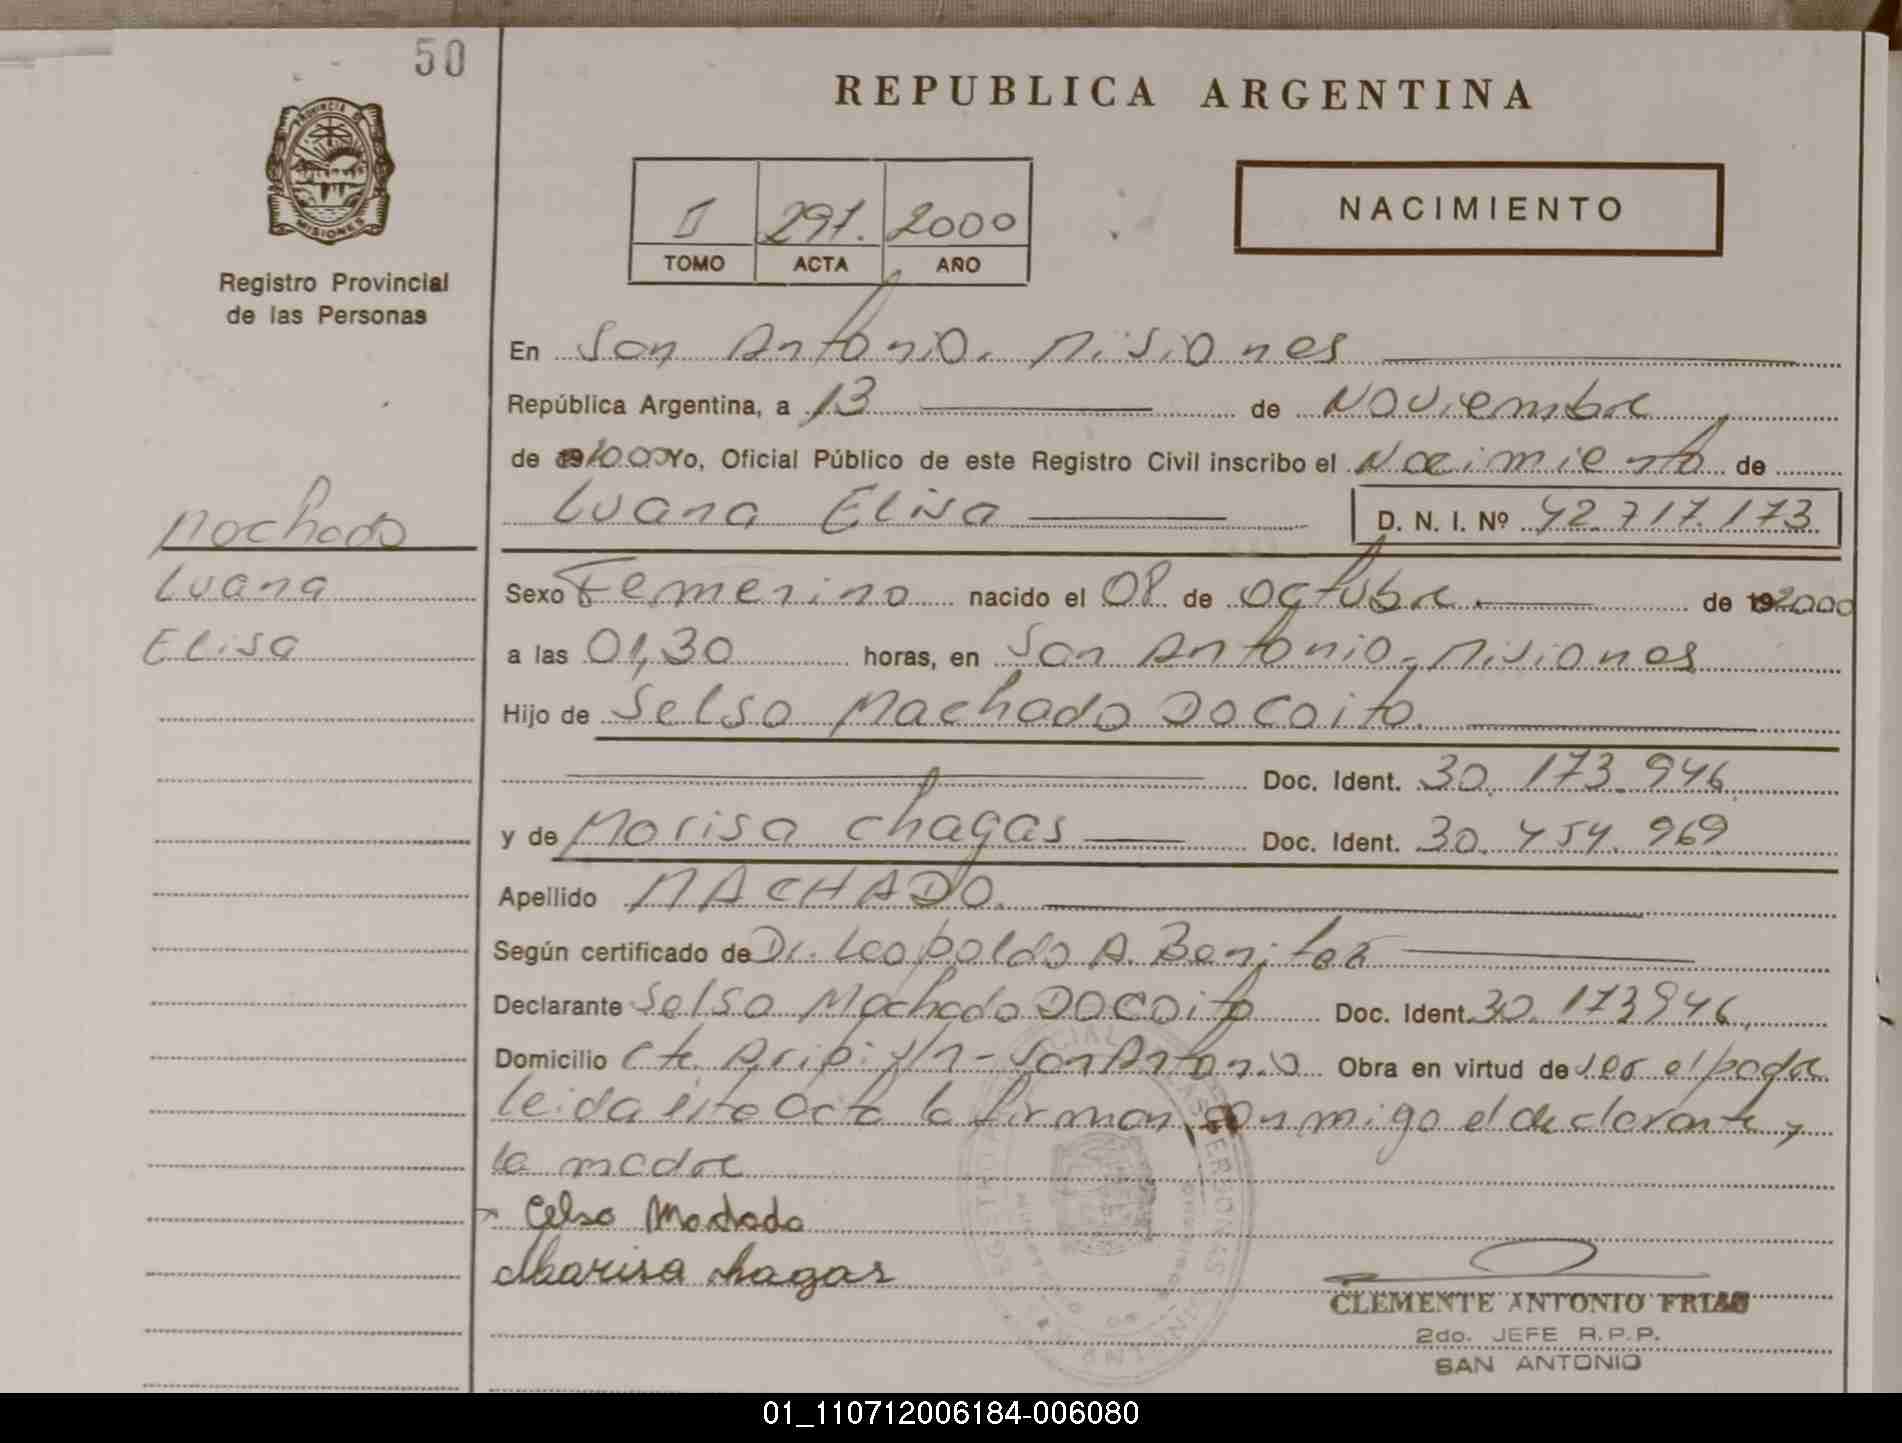 50
REPUBLICA ARGENTINA
PROVINCIA DE
MISIONES
Registro Provincial
de las Personas
II 291. 2000
TOMO ACTA AÑO
NACIMIENTO
En San Antonio. Misiones
República Argentina, a 13 de Noviembre
de Yo, Oficial Público de este Registro Civil inscribo el Nacimiento de
Luana Elisa D. N. I. Nº 42.717.173
Machado
Luana
Elisa
Sexo Femenino nacido el 08 de octubre. de 192000
a las 01,30 horas, en San Antonio - Misiones
Hijo de Selso Machado DOCOito.
Doc. Ident. 30.173.946
y de Marisa Chagas Doc. Ident. 30.454.969
Apellido MACHADO.
Según certificado de Dr. Leopoldo A. Benitez
Declarante Selso Machado DOCOito Doc. Ident. 30.173946.
Domicilio Cte. s/n - San Antonio Obra en virtud de ser el padre
leida esta acta la firman conmigo el declarante y
la madre
Celso Machado
Marisa chagas
CLEMENTE ANTONIO FRIAS
2do. JEFE R.P.P.
SAN ANTONIO
01_110712006184-006080